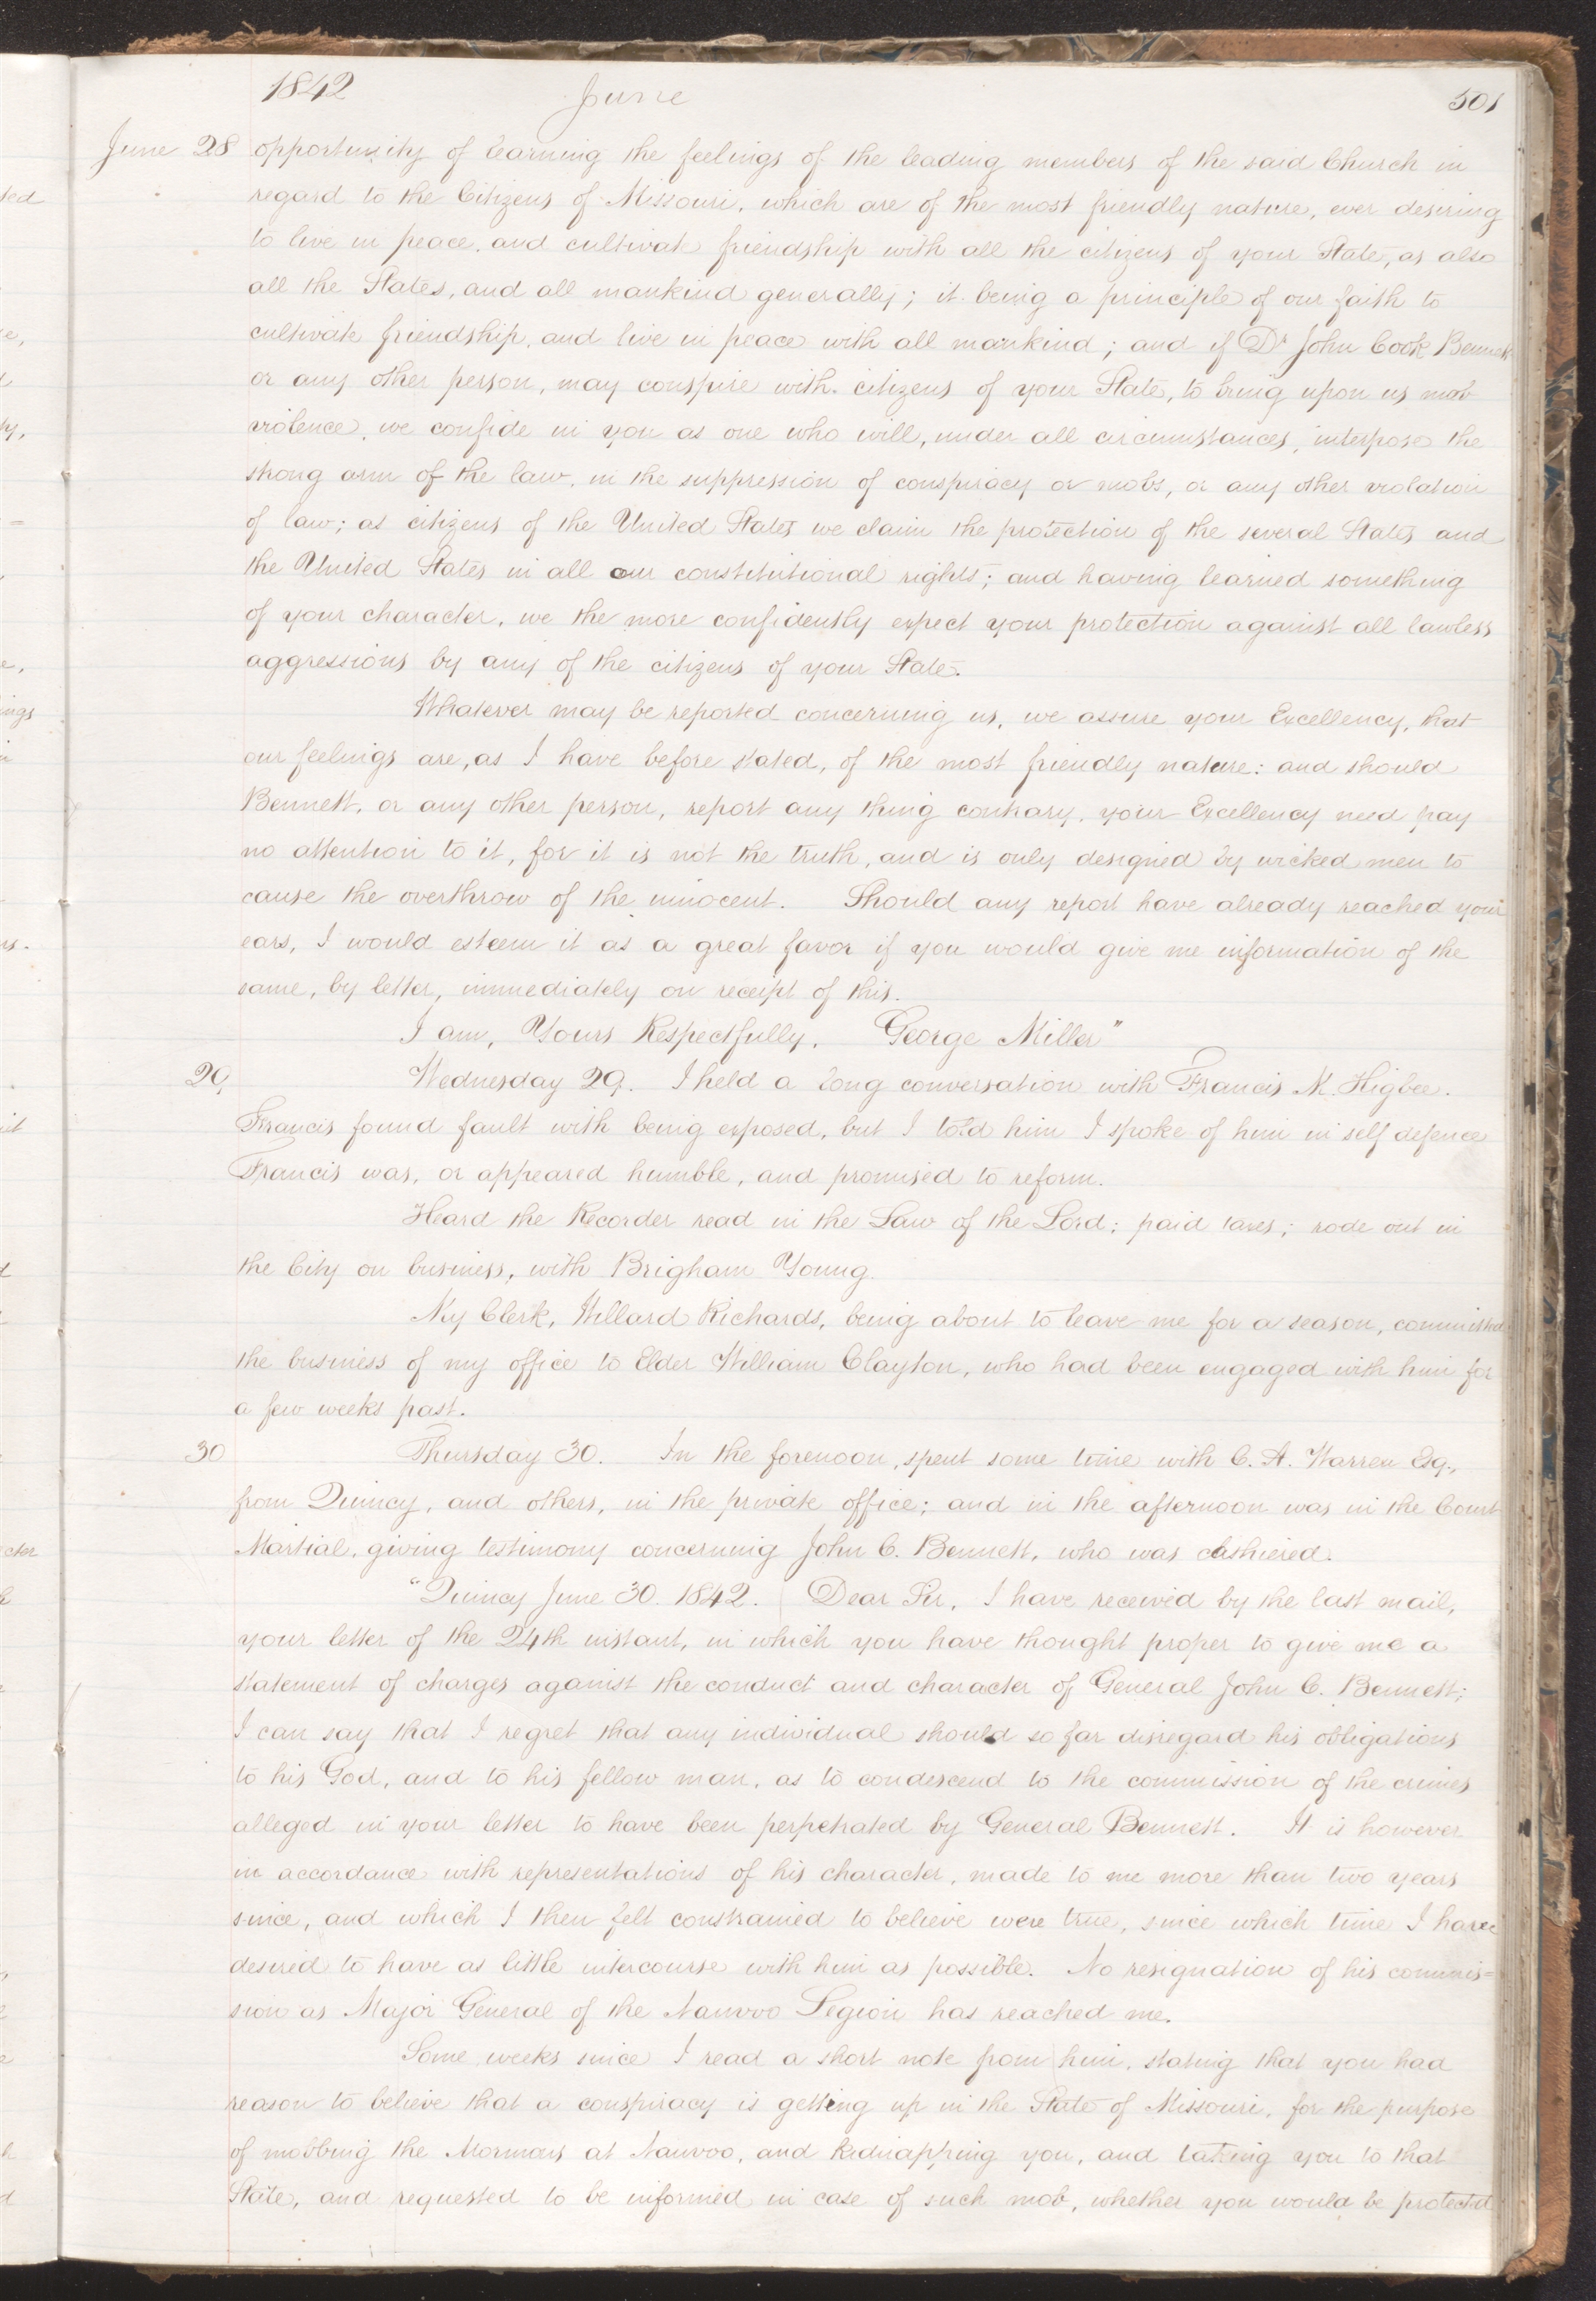 1842 June 501
June 28 opportunity of learning the feelings of the leading members of the said Church in
regard to the Citizens of Missouri, which are of the most friendly nature, ever desiring
to live in peace, and cultivate friendship with all the citizens of your State, as also
all the States, and all mankind generally; it being a principle of our faith to
cultivate friendship, and live in peace with all mankind; and if Dr John Cook Bennett
or any other person, may conspire with citizens of your State, to bring upon us mob
violence, we confide in you as one who will, under all circumstances, interpose the
strong arm of the law, in the suppression of conspiracy or mobs, or any other violation
of law; as citizens of the United States we claim the protection of the several States and
the United States in all our constitutional rights; and having learned something
of your character, we the more confidently expect your protection against all lawless
aggressions by any of the citizens of your State.
Whatever may be reported concerning us, we assure your Excellency, that
our feelings are, as I have before stated, of the most friendly nature: and should
Bennett, or any other person, report any thing contrary, your Excellency need pay
no attention to it, for it is not the truth, and is only designed by wicked men to
cause the overthrow of the innocent. Should any report have already reached your
ears, I would esteem it as a great favor if you would give me information of the
same, by letter, immediately on receipt of this.
I am, Yours Respectfully, George Miller"
29 Wednesday 29. I held a long conversation with Francis M. Higbee.
Francis found fault with being exposed, but I told him I spoke of him in self defence
Francis was, or appeared humble, and promised to reform.
Heard the Recorder read in the Law of the Lord; paid taxes; rode out in
the City on business, with Brigham Young.
My Clerk, Willard Richards, being about to leave me for a season, committed
the business of my office to Elder William Clayton, who had been engaged with him for
a few weeks past.
30 Thursday 30. In the forenoon, spent some time with C. A. Warren Esq.,
from Quincy, and others, in the private office; and in the afternoon was in the Court
Martial, giving testimony concerning John C. Bennett, who was cashiered.
"Quincy June 30. 1842. Dear Sir, I have received by the last mail,
your letter of the 24th instant, in which you have thought proper to give me a
statement of charges against the conduct and character of General John C. Bennett;
I can say that I regret that any individual should so far disregard his obligations
to his God, and to his fellow man, as to condescend to the commission of the crimes
alleged in your letter to have been perpetrated by General Bennett. It is however
in accordance with representations of his character, made to me more than two years
since, and which I then felt constrained to believe were true, since which time I have
desired to have as little intercourse with him as possible. No resignation of his commis=
sion as Major General of the Nauvoo Legion has reached me.
Some weeks since I read a short note from him, stating that you had
reason to believe that a conspiracy is getting up in the State of Missouri, for the purpose
of mobbing the Mormons at Nauvoo, and kidnapping you, and taking you to that
State, and requested to be informed in case of such mob, whether you would be protected